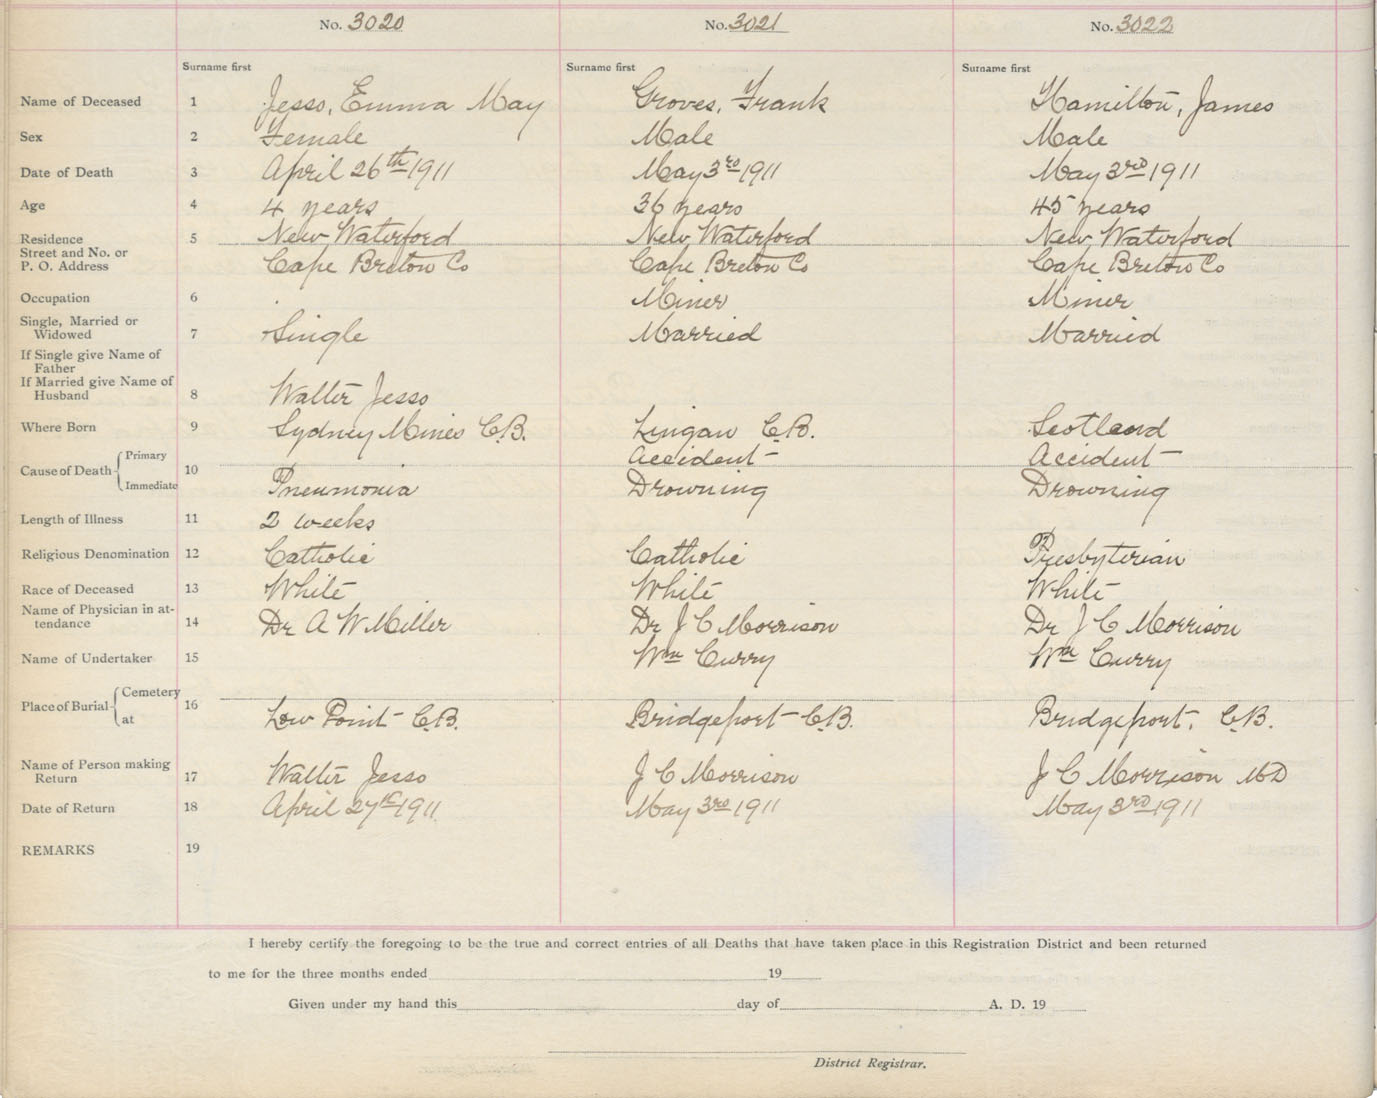 No. 3020 No. 3021 No. 3022
Surname first Surname first Surname first
Name of Deceased 1 Jesso, Emma May Groves, Frank Hamilton, James
Sex 2 Female Male Male
Date of Death 3 April 26th 1911 May 3rd 1911 May 3rd 1911
Age 4 4 years 36 years 45 years
Residence 5 New Waterford New Waterford New Waterford
Street and No. or
P. O. Address Cape Breton Co Cape Breton Co Cape Breton Co
Occupation 6 Miner Miner
Single, Married or
Widowed 7 Single Married Married
If Single give Name of
Father
If Married give Name of
Husband 8 Walter Jesso
Where Born 9 Sydney Mines C.B. Lingan C.B. Scotland
Cause of Death Primary 10 Accident Accident
Immediate Pneumonia Drowning Drowning
Length of Illness 11 2 weeks
Religious Denomination 12 Catholic Catholic Presbyterian
Race of Deceased 13 White White White
Name of Physician in at-
tendance 14 Dr A W Miller Dr J C Morrison Dr J C Morrison
Name of Undertaker 15 Wm Curry Wm Curry
Place of Burial Cemetery 16
at Low Point C.B. Bridgeport C.B. Bridgeport, C.B.
Name of Person making
Return 17 Walter Jesso J C Morrison J C Morrison MD
Date of Return 18 April 27th 1911 May 3rd 1911 May 3rd 1911
REMARKS 19
I hereby certify the foregoing to be the true and correct entries of all Deaths that have taken place in this Registration District and been returned
to me for the three months ended 19
Given under my hand this day of A. D. 19
District Registrar.